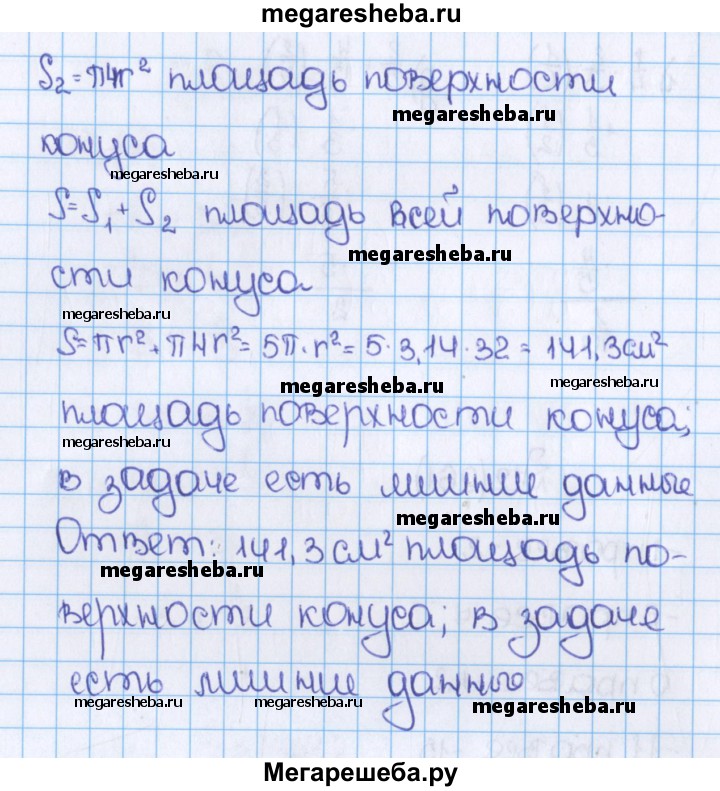 megaresheba.ru
S₂=π4r² площадь поверхности
megaresheba.ru
конуса
megaresheba.ru
S=S₁+S₂ площадь всей поверхно-
megaresheba.ru
сти конуса
megaresheba.ru
S=πr²+π4r²=5π·r²=5·3,14·32=141,3см²
megaresheba.ru
megaresheba.ru
площадь поверхности конуса;
megaresheba.ru
в задаче есть лишние данные
megaresheba.ru
Ответ: 141,3см² площадь по-
megaresheba.ru
верхности конуса; в задаче
есть лишние данные
megaresheba.ru
megaresheba.ru
megaresheba.ru
Мегарешеба.ру